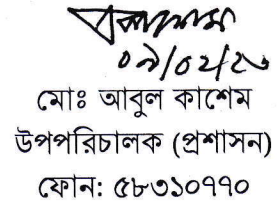 ০৯/০২/২০
মোঃ আবুল কাশেম
উপপরিচালক (প্রশাসন)
ফোন: ৫৮৩১০৭৭০